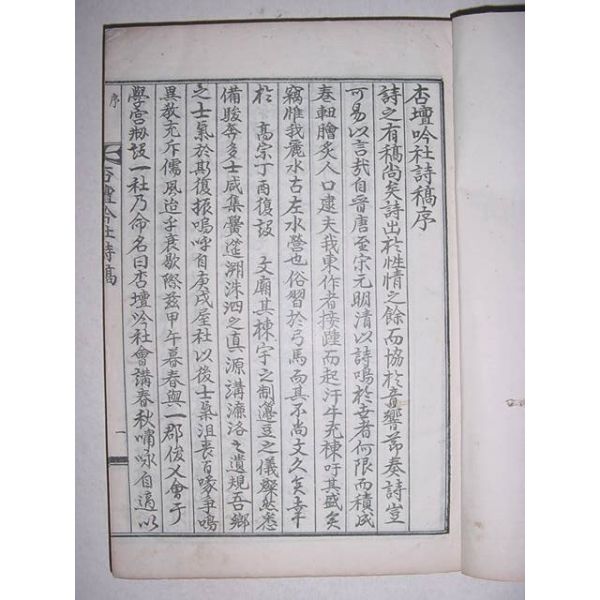 杏壇吟社詩稿序
詩之有稿尚矣詩出於性情之餘而協於音響節奏詩豈
可易以言哉自晉唐至宋元明清以詩鳴於世者何限而積成
卷軸膾炙人口逮夫我東作者接踵而起汗牛充棟吁其盛矣
竊惟我麗水古左水營也俗習於弓馬而其不尚文久矣幸
於 高宗丁酉復設 文廟其棟宇之制籩豆之儀粲然悉
備駿奔多士咸集黌筵溯洙泗之眞源講濂洛之遺規吾鄉
之士氣於斯復振嗚呼自庚戌屋社以後士氣沮喪百喙爭鳴
異敎充斥儒風迨于衰歇際玆甲午暮春與一郡佽乂會于
學宮刱設一社乃命名曰杏壇吟社會講春秋嘯咏自適以
序
杏壇吟社詩稿
一